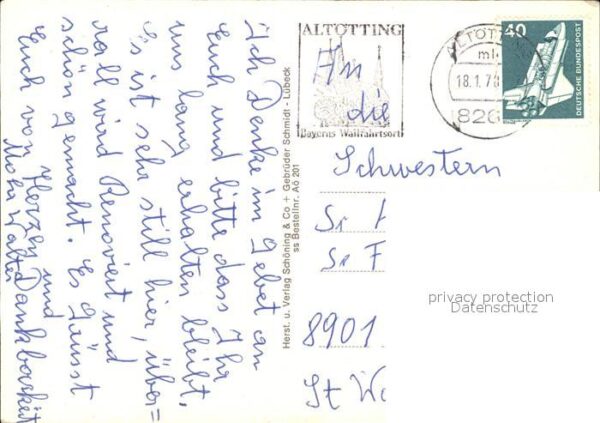 Ich Denke im Gebet an
Euch und bitte dass Ihr
uns lang erhalten bleibt.
Es ist sehr still hier, über=
all wird Renoviert und
schön gemacht. Es Grüsst
Euch von Herzen und
Dankbarkeit
Walter
Herst. u. Verlag Schöning & Co + Gebrüder Schmidt - Lübeck
ss Bestellnr. Aö 201
ALTÖTTING
Bayerns Wallfahrtsort
ALTÖTT
18.1.7
826
40
DEUTSCHE BUNDESPOST
An
die
Schwestern
Sr
Sr F
8901
St W
privacy protection
Datenschutz